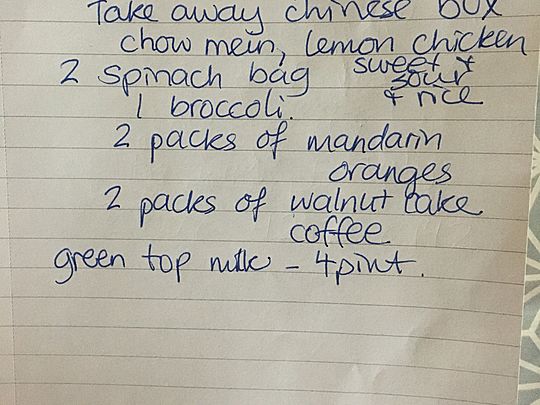 Take away chinese box
chow mein, lemon chicken
2 spinach bag sweet +
sour
1 broccoli. + rice
2 packs of mandarin
oranges
2 packs of walnut cake
coffee
green top milk - 4pint.